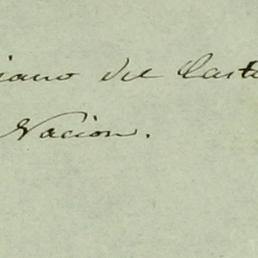 iano del Caste
Nacion.